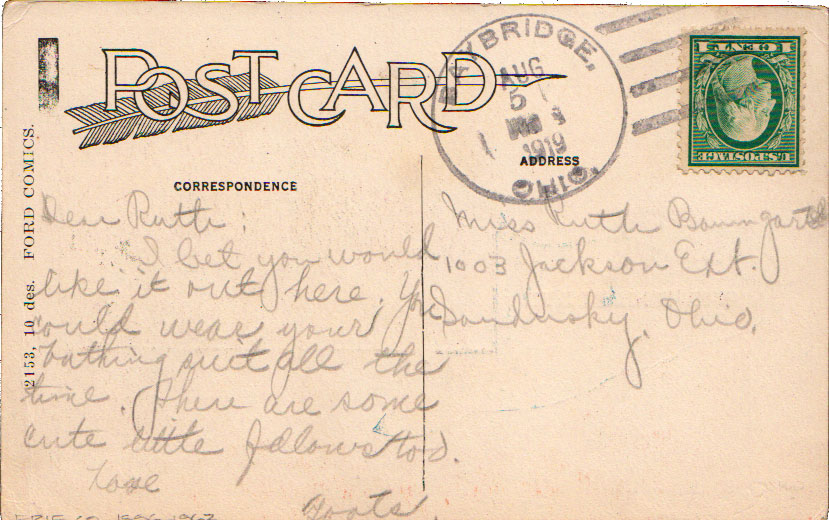 POST CARD
BAYBRIDGE,
AUG
5
PM
1919
OHIO.
1 CENT 1
U.S. POSTAGE
ADDRESS
CORRESPONDENCE
2153, 10 des. FORD COMICS.
Dear Ruth:
I bet you would
like it out here. You
could wear your
bathing suit all the
time. There are some
cute little fellows too.
Love
Miss Ruth Baumgartel
1003 Jackson Ext.
Sandusky, Ohio.